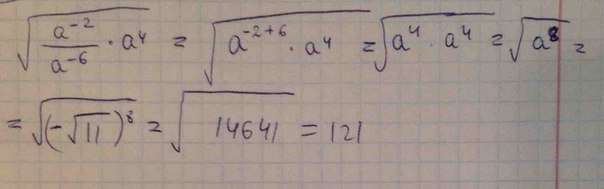 √(a⁻²/a⁻⁶ · a⁴) = √(a⁻²⁺⁶ · a⁴) = √(a⁴ · a⁴) = √(a⁸) =
= √((-√11)⁸) = √(14641) = 121